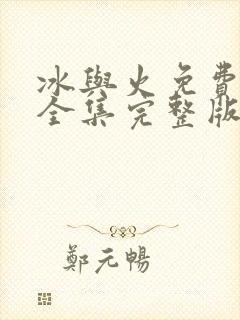 冰與火免費
全集完整版
鄭元暢